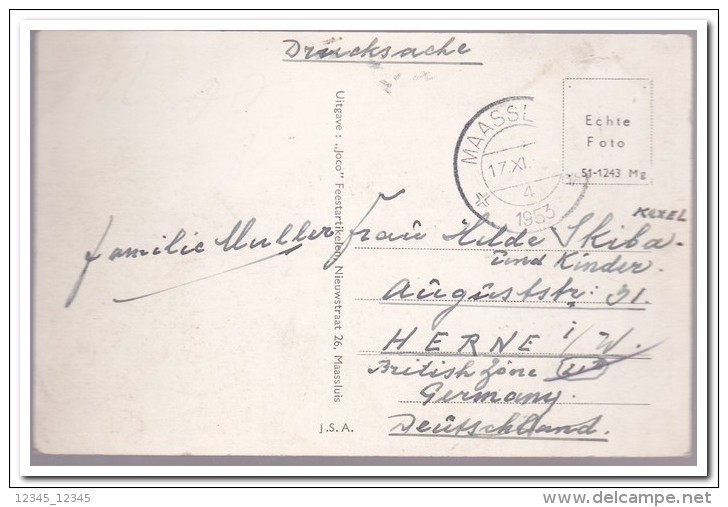 Drucksache
MAASSL
17.XI.
4
1953
Echte
Foto
51-1243 Me
Uitgave: „Joco" Feestartikelen, Nieuwstraat 26, Maassluis
J.S.A.
Familie Muller
Frau Hilde Skiba-
KEXEL
und Kinder.
Auguststr: 31.
HERNE i/W.
British Zone
Germany.
Deutschland.
12345_12345
© www.delcampe.net